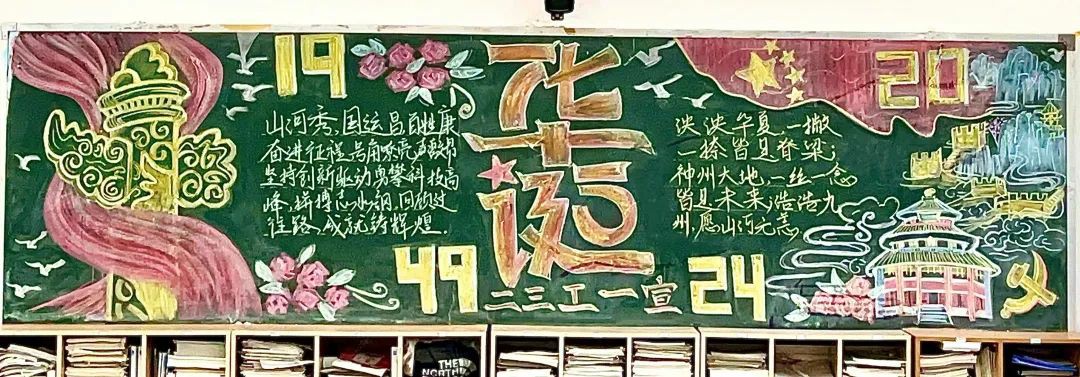 19
49
山河秀,国运昌百姓康
奋进征程,号角嘹亮,声激昂
坚持创新驱动勇攀科技高
峰,拼搏志如钢,回顾过
往路、成就铸辉煌.
华
诞
二三工一宣
20
24
泱泱华夏,一撇
一捺皆是脊梁;
神州大地,一丝一念
皆是未来;浩浩九
州,愿山河无恙
THE
NORTH